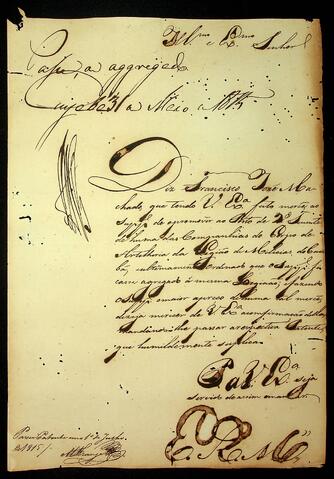 Ill.mo e Ex.mo Senhor
Passe, a aggregado
Cuyabá 31 de Maio de 1815
Diz Francisco José Ma-
chado, que tendo V. Ex.a feito mercê, ao
Supp.e de o promover ao Posto de 2º Tenente
de huma das Companhias do Corpo de
Artilheria da Legião de Milicias de Cuia-
bá, ultimamente ordenado que o Supp.e fi-
casse agregado á mesma Legiao, e fazendo
o Supp.e o maior apreço de huma tal mercê,
deseja merecer de V. Ex.a a confirmação della
mandando-lhe passar a respectiva Patente,
que humildemente supplica
P. a V. Ex.a seja
servido de assim o mandar
E. R. M.ce
Passou Patente em 1º de Junho
de 1815